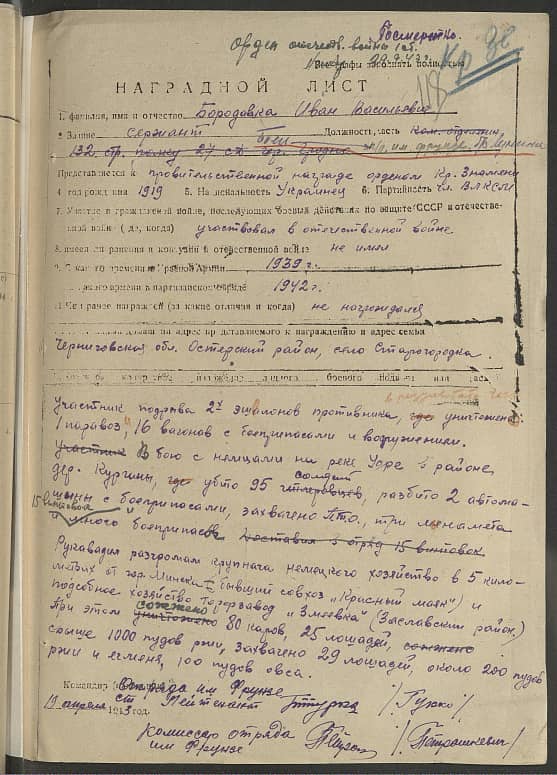 Посмертно.
Орден отечеств. войны 1 ст.
Все графы заполнять полностью
НАГРАДНОЙ ЛИСТ
1. Фамилия, имя и отчество Бородавка Иван Васильевич
2. Звание сержант Должность, часть ком. отделения
боец
132 стр. полку 27 с.д.
п/о им. Фрунзе
Представляется к правительственной награде орденом Кр. Знамени
4. год рождения 1919 5. Национальность Украинец 6. Партийность чл. ВЛКСМ
7. Участие в гражданской войне, последующих боевых действиях по защите СССР и отечественной войне (где, когда) участвовал в отечественной войне
8. имеет ли ранения и контузии в отечественной войне не имел
9. С какого времени в Красной Армии 1939 г.
с какого времени в партизанском отряде 1942 г.
11. Чем ранее награжден (за какие отличия и когда) не награждался
адрес представляемого к награждению и адрес семьи
Черниговская обл. Остерский район, село Старогородка.
Участник подрыва 2х эшалонов противника, где уничтожено
1 паравоз, 16 вагонов с боеприпасами и вооружением.
Участник В бою с немцами на реке Уде в районе
солдат
дер. Курганы, где убито 95 гитлеровцев, разбито 2 автома-
шины с боеприпасами, захвачено ПТО, три миномета
15 винтовок
и много боеприпасов доставил в отряд 15 винтовок
Рукавадил разгромам крупнача немецкого хозяйство в 5 кило-
метрах от гор. Минска (бывший совхоз "Красный маяк") и
подсобное хозяйство Торфзавод "Змеевка" (Заславский район)
сожжено
При этом уничтожено 80 каров, 25 лошадей, сожжено
свыше 1000 пудов ржи, захвачено 29 лошадей, около 200 пудов
ржи и есменя, 100 пудов овса.
Командир Отряда им. Фрунзе
ст. Лейтенант /Гузко/
19 апреля 1943 год.
Комиссар отряда
им. Фрунзе /Петрашкевич/